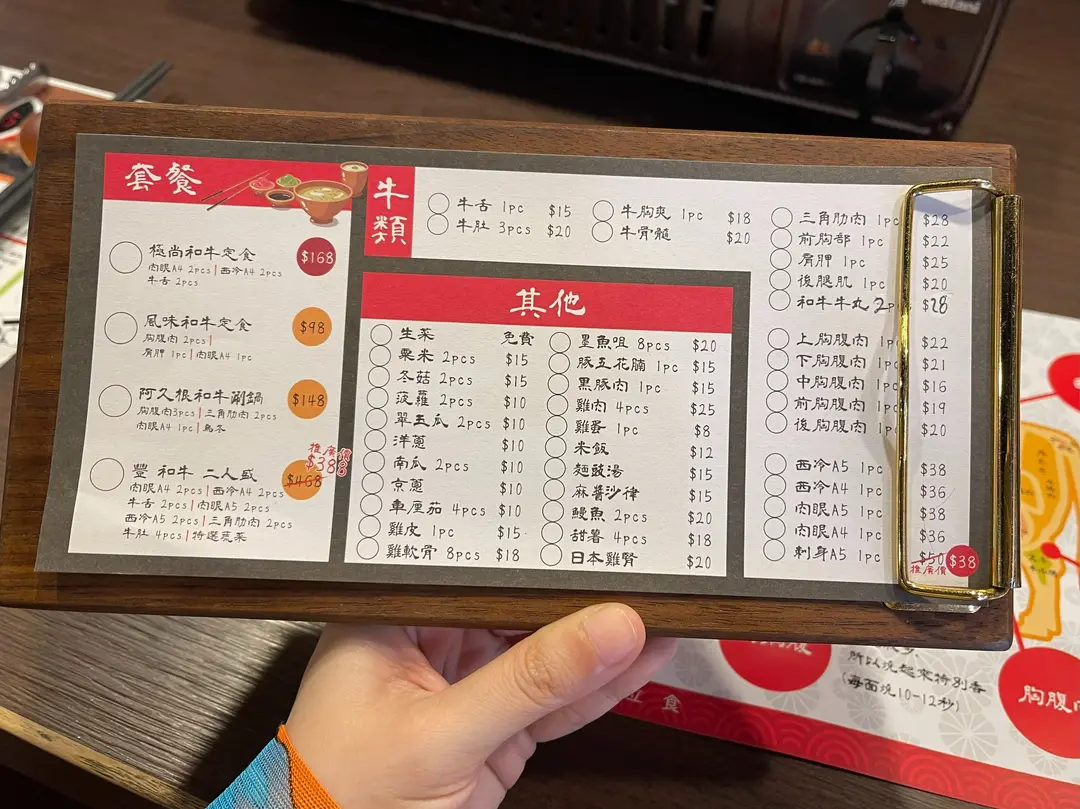 套餐
極尚和牛定食 $168
肉眼A4 2pcs | 西冷A4 2pcs
牛舌 2pcs
風味和牛定食 $98
胸腹肉 2pcs |
肩胛 1pc | 肉眼A4 1pc
阿久根和牛涮鍋 $148
胸腹肉3pcs | 三角肋肉 2pcs
肉眼A4 1pc | 烏冬
推廣價
$388
豐 和牛 二人盛 $468
肉眼A4 2pcs | 西冷A4 2pcs
牛舌 2pcs | 肉眼A5 2pcs
西冷A5 2pcs | 三角肋肉 2pcs
牛肚 4pcs | 特選蔬菜
牛類
牛舌 1pc $15
牛肚 3pcs $20
牛胸爽 1pc $18
牛骨髓 $20
三角肋肉 1pc $28
前胸部 1pc $22
肩胛 1pc $25
後腿肌 1pc $20
和牛牛丸 2p $28
上胸腹肉 1pc $22
下胸腹肉 1pc $21
中胸腹肉 1pc $16
前胸腹肉 1pc $19
後胸腹肉 1pc $20
西冷A5 1pc $38
西冷A4 1pc $36
肉眼A5 1pc $38
肉眼A4 1pc $36
刺身A5 1pc $50 $38
推廣價
其他
生菜 免費
粟米 2pcs $15
冬菇 2pcs $15
菠蘿 2pcs $10
翠玉瓜 2pcs $10
洋蔥 $10
南瓜 2pcs $10
京蔥 $10
車厘茄 4pcs $10
雞皮 1pc $15
雞軟骨 8pcs $18
墨魚咀 8pcs $20
豚五花腩 1pc $15
黑豚肉 1pc $15
雞肉 4pcs $25
雞蛋 1pc $8
米飯 $12
麵豉湯 $15
麻醬沙律 $15
鰻魚 2pcs $20
甜薯 4pcs $18
日本雞腎 $20
所以燒起來特別香
(每面燒10-12秒)
胸腹肉
食